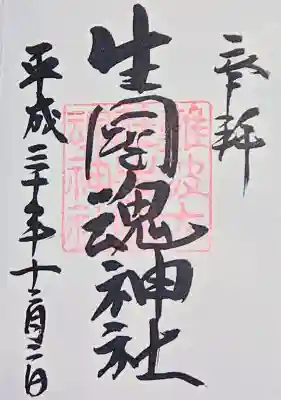 奉拝
生國魂神社
平成三十年十二月二日